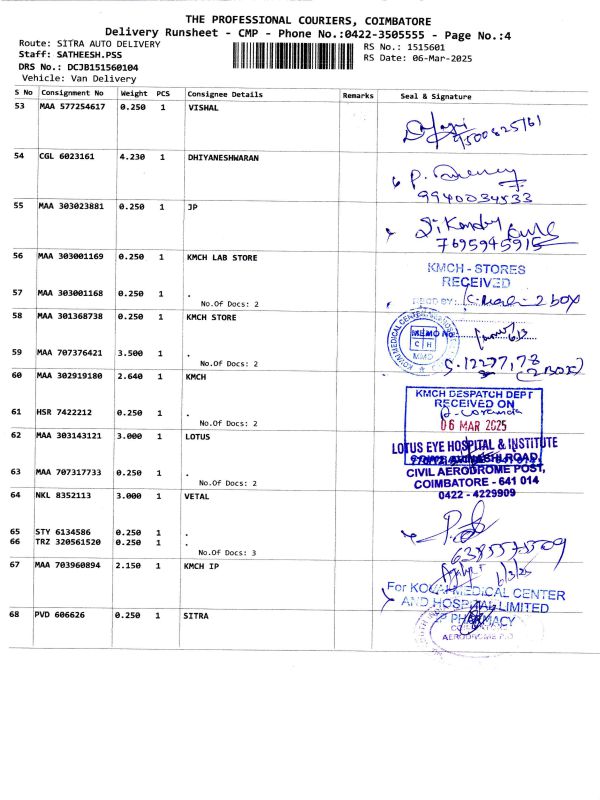 THE PROFESSIONAL COURIERS, COIMBATORE
Delivery Runsheet - CMP - Phone No.:0422-3505555 - Page No.:4
Route: SITRA AUTO DELIVERY
RS No.: 1515601
Staff: SATHEESH.PSS
RS Date: 06-Mar-2025
DRS No.: DCJB151560104
Vehicle: Van Delivery
S No Consignment No Weight PCS Consignee Details Remarks Seal & Signature
53 MAA 577254617 0.250 1 VISHAL
9500825761
54 CGL 6023161 4.230 1 DHIYANESHWARAN
9940034533
55 MAA 303023881 0.250 1 JP
7695945915
56 MAA 303001169 0.250 1 KMCH LAB STORE
KMCH - STORES
RECEIVED
57 MAA 303001168 0.250 1 .
No.Of Docs: 2
RECD BY: 2 box
58 MAA 301368738 0.250 1 KMCH STORE
MEMO No
C H
MMD
59 MAA 707376421 3.500 1 .
No.Of Docs: 2
S.12277,78
(2 BOX)
60 MAA 302919180 2.640 1 KMCH
KMCH DESPATCH DEPT
RECEIVED ON
06 MAR 2025
61 HSR 7422212 0.250 1 .
No.Of Docs: 2
62 MAA 303143121 3.000 1 LOTUS
LOTUS EYE HOSPITAL & INSTITUTE
AVINASHI ROAD,
63 MAA 707317733 0.250 1 .
No.Of Docs: 2
CIVIL AERODROME POST,
COIMBATORE - 641 014
0422 - 4229909
64 NKL 8352113 3.000 1 VETAL
65 STY 6134586 0.250 1 .
66 TRZ 320561520 0.250 1 .
No.Of Docs: 3
67 MAA 703960894 2.150 1 KMCH IP
6/3/25
For KOVAI MEDICAL CENTER
AND HOSPITAL LIMITED
IP PHARMACY
68 PVD 606626 0.250 1 SITRA
AERODROME P.O